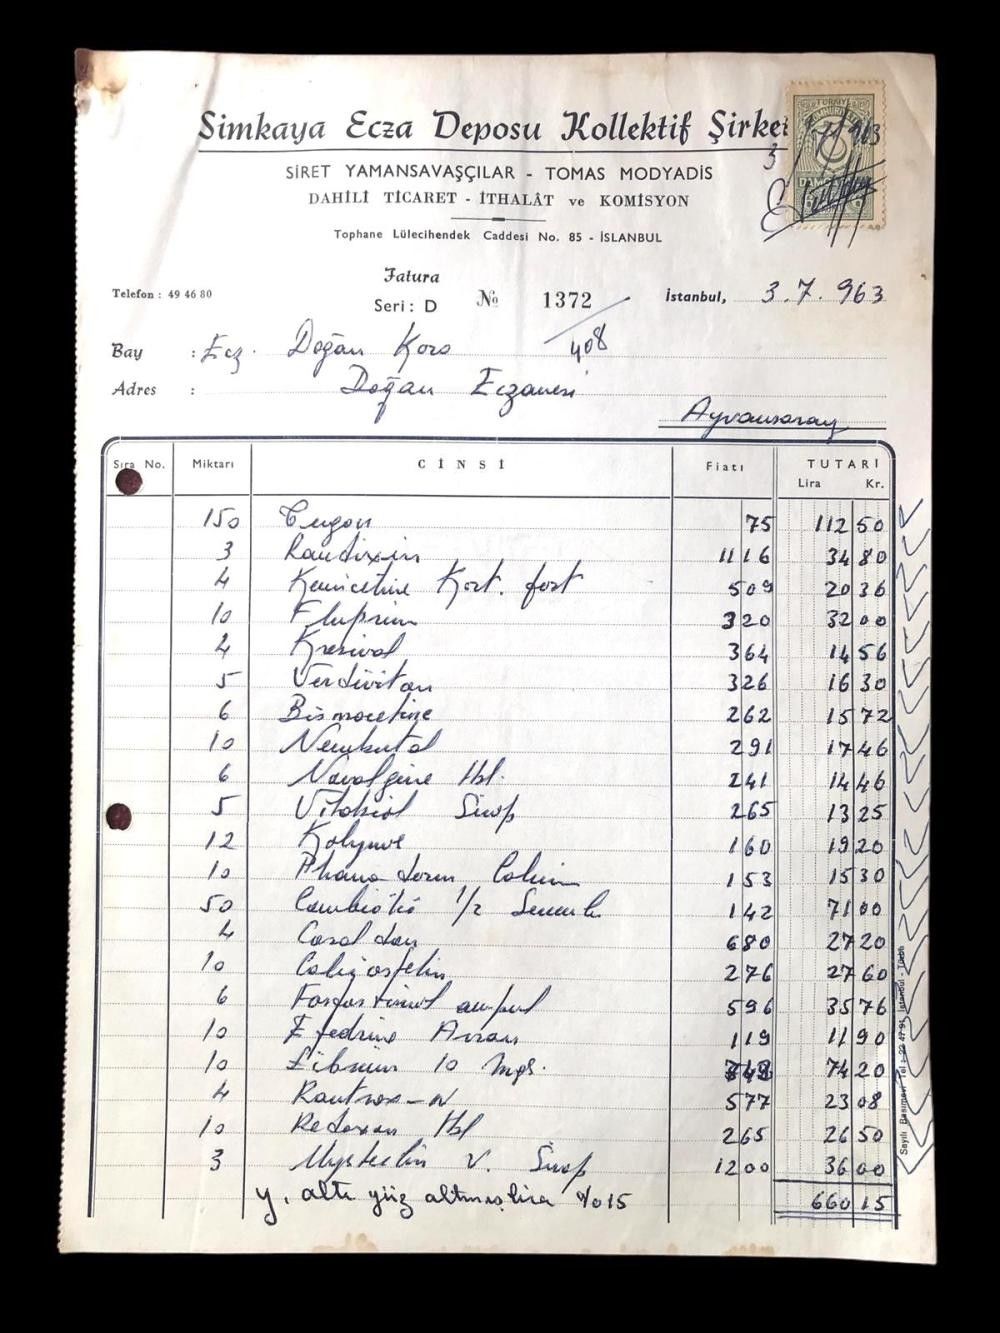 Simkaya Ecza Deposu Kollektif Şirke
SİRET YAMANSAVAŞÇILAR - TOMAS MODYADİS
DAHİLİ TİCARET - İTHALÂT ve KOMİSYON
Tophane Lülecihendek Caddesi No. 85 - İSLANBUL
Fatura
Telefon : 49 46 80
Seri : D № 1372
İstanbul, 3.7.963
408
Bay : Ecz. Doğan Koro
Adres : Doğan Eczanesi
Ayvansaray
Sıra No. Miktarı CİNSİ Fiatı TUTARI
Lira Kr.
150 75 112 50
3 Raudixin 11 16 34 80
4 Kemicetine Kort. fort 5 09 20 36
10 3 20 32 00
4 Kresival 3 64 14 56
5 Verdivitan 3 26 16 30
6 Bismocetine 2 62 15 72
10 Nembutal 2 91 17 46
6 Novalgine Tbl. 2 41 14 46
5 Sirop 2 65 13 25
12 Kolynos 1 60 19 20
10 1 53 15 30
50 Combiotic 1/2 1 42 71 00
4 6 80 27 20
10 2 76 27 60
6 ampul 5 96 35 76
10 Efedrine 1 19 11 90
10 Librium 10 Mgs. 74 20
4 Rautrax-N 5 77 23 08
10 Redoxon Tbl 2 65 26 50
3 Mysteclin V. Sirop 12 00 36 00
y. altı yüz altmış lira %15 660 15
Sayılı Basımevi Tel : 22 47 91 İstanbul - Türbe